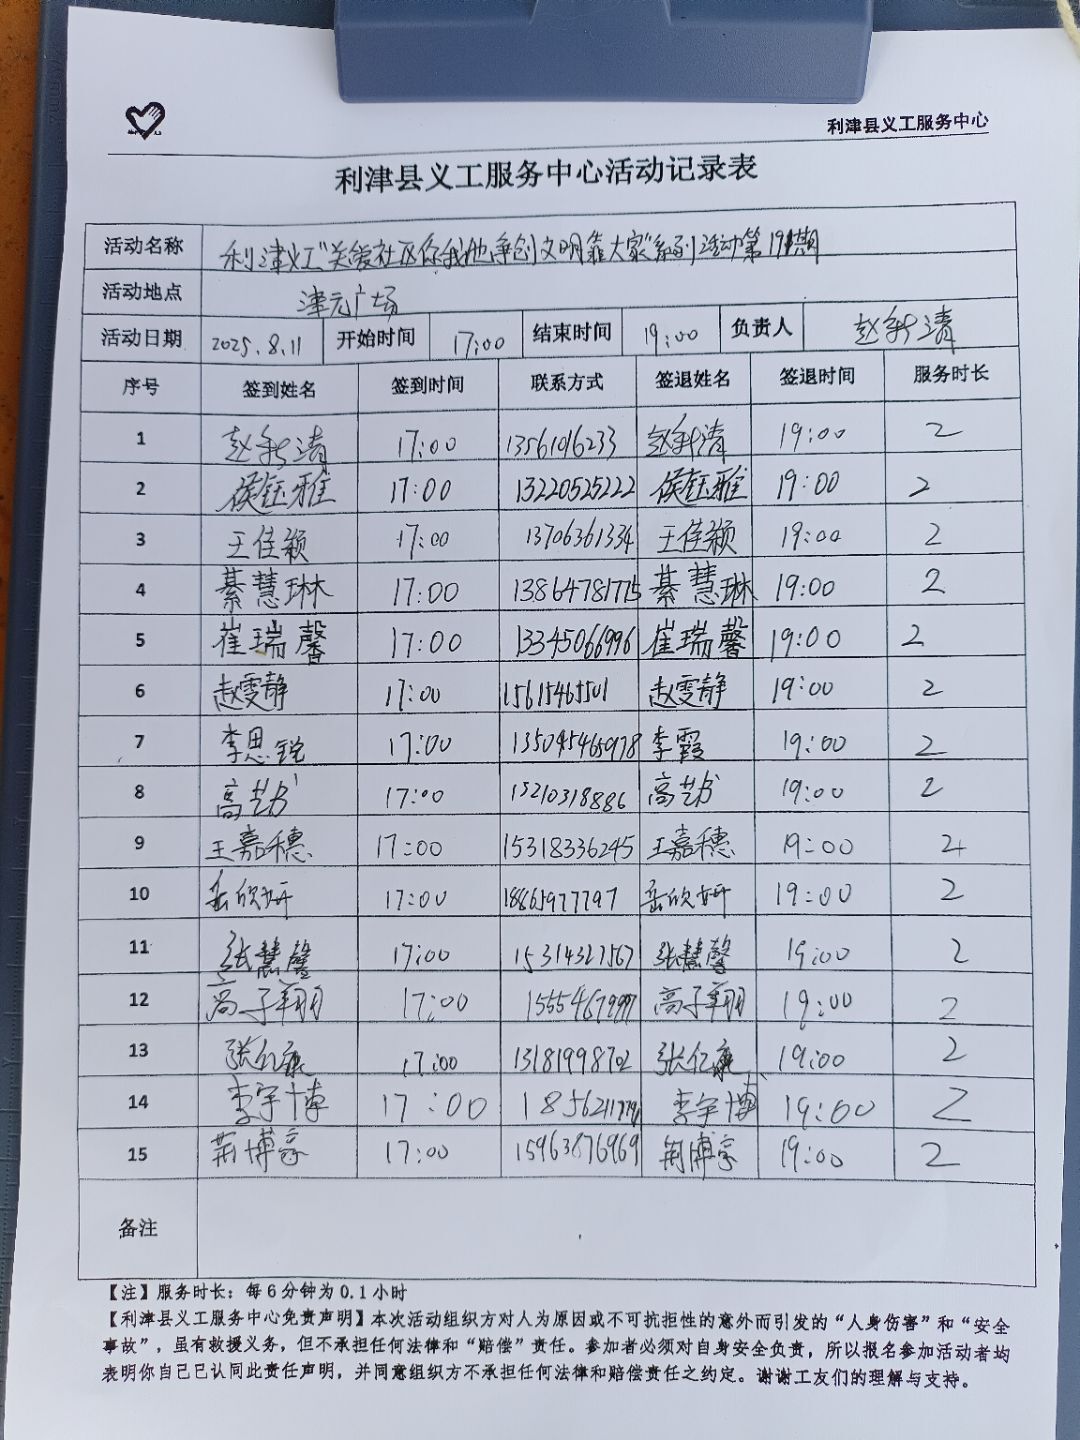 利津县义工服务中心
利津县义工服务中心活动记录表
活动名称 利津义工"关爱社区你我他争创文明靠大家"系列活动第191期
活动地点 津元广场
活动日期 2025.8.11 开始时间 17:00 结束时间 19:00 负责人 赵新清
序号 签到姓名 签到时间 联系方式 签退姓名 签退时间 服务时长
1 赵新清 17:00 13561016233 赵新清 19:00 2
2 侯钰雅 17:00 13220525222 侯钰雅 19:00 2
3 王佳颖 17:00 13706361334 王佳颖 19:00 2
4 綦慧琳 17:00 13864781775 綦慧琳 19:00 2
5 崔瑞馨 17:00 13345066996 崔瑞馨 19:00 2
6 赵雯静 17:00 15615465501 赵雯静 19:00 2
7 李思锐 17:00 李霞 19:00 2
8 高艺 17:00 15210318886 高艺 19:00 2
9 王嘉穗 17:00 15318336245 王嘉穗 19:00 2
10 岳欣妍 17:00 18865977797 岳欣妍 19:00 2
11 张慧馨 17:00 15314327567 张慧馨 19:00 2
12 高子翔 17:00 高子翔 19:00 2
13 张仁康 17:00 13181998702 张仁康 19:00 2
14 李宇博 17:00 李宇博 19:00 2
15 荆博豪 17:00 15963876969 荆博豪 19:00 2
备注
【注】服务时长：每6分钟为0.1小时
【利津县义工服务中心免责声明】本次活动组织方对人为原因或不可抗担性的意外而引发的“人身伤害”和“安全
事故”，虽有救援义务，但不承担任何法律和“赔偿”责任。参加者必须对自身安全负责，所以报名参加活动者均
表明你自己已认同此责任声明，并同意组织方不承担任何法律和赔偿责任之约定。谢谢工友们的理解与支持。